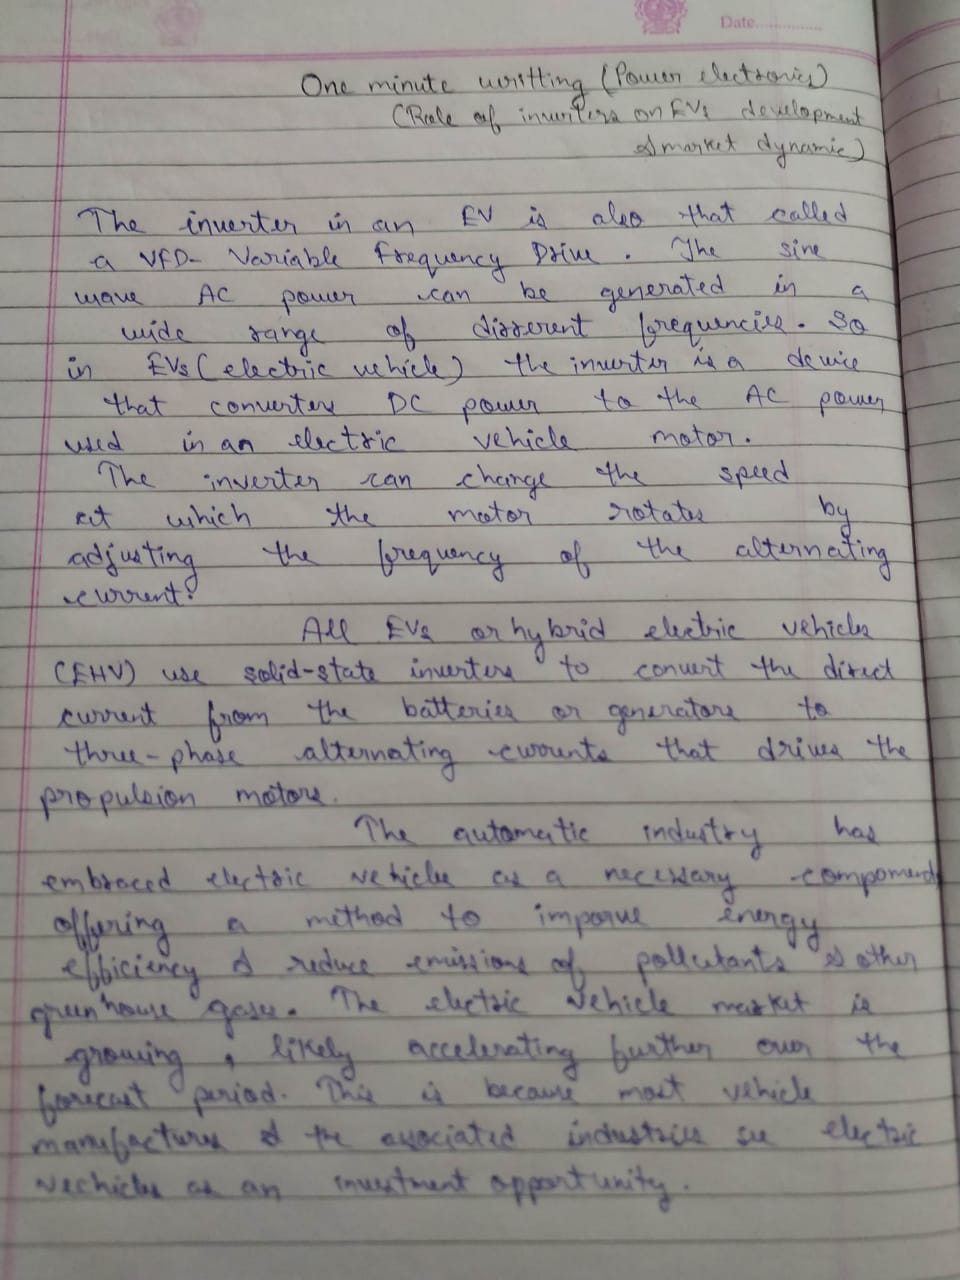 Date..............
One minute writting (Power electronics)
(Role of inverters on EVs development
& market dynamic)
The inverter in an EV is also that called
a VFD- Variable Frequency Drive. The sine
wave AC power can be generated in a
wide range of different frequencies. So
in EVs (electric vehicle) the inverter is a device
that converters DC power to the AC power
used in an electric vehicle motor.
The inverter can change the speed
at which the motor rotates by
adjusting the frequency of the alternating
current.
All EVs or hybrid electric vehicles
(EHV) use solid-state inverters to convert the direct
current from the batteries or generators to
three-phase alternating currents that drives the
propulsion motors.
The automatic industry has
embraced electric vehicles as a necessary
offering a method to imporve energy
efficiency & reduce emissions of pollutants & other
greenhouse gases. The electric vehicle market is
growing, likely accelerating further over the
forecast period. This is because most vehicle
manufactures & the associated industries see electric
vechicles as an investment opportunity.